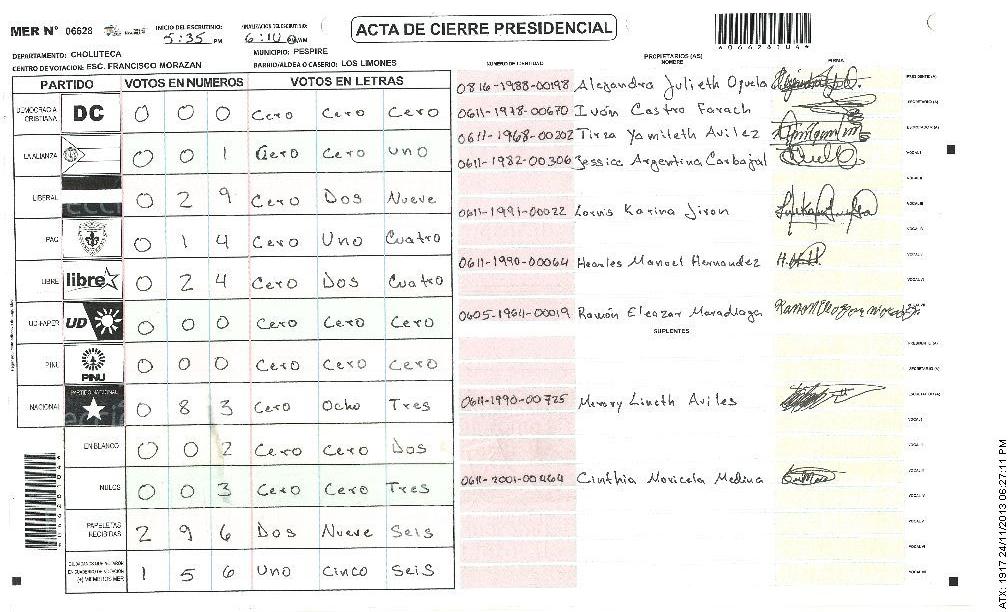 MER N° 06628 INICIO DEL ESCRUTINIO: 5:35 PM FINALIZACION DEL ESCRUTINIO: 6:10 PM
ACTA DE CIERRE PRESIDENCIAL
DEPARTAMENTO: CHOLUTECA MUNICIPIO: PESPIRE
CENTRO DE VOTACION: ESC. FRANCISCO MORAZAN BARRIO/ALDEA O CASERIO: LOS LIMONES
PARTIDO VOTOS EN NUMEROS VOTOS EN LETRAS
DEMOCRACIA CRISTIANA DC 0 0 0 Cero Cero Cero
LA ALIANZA 0 0 1 Cero Cero uno
LIBERAL 0 2 9 Cero Dos Nueve
PAC 0 1 4 Cero Uno Cuatro
LIBRE libre 0 2 4 Cero Dos Cuatro
UD-FAPER UD 0 0 0 Cero Cero Cero
PINU PINU 0 0 0 Cero Cero Cero
NACIONAL PARTIDO NACIONAL 0 8 3 Cero Ocho Tres
EN BLANCO 0 0 2 Cero Cero Dos
NULOS 0 0 3 Cero Cero Tres
PAPELETAS RECIBIDAS 2 9 6 Dos Nueve Seis
1 5 6 Uno Cinco Seis
NUMERO DE IDENTIDAD PROPIETARIOS (AS) NOMBRE FIRMA
0816-1988-00198 Alejandra Julieth Oyuela PRESIDENTE (A)
0611-1978-00670 Iván Castro Farach SECRETARIO (A)
0611-1968-00202 Tirza Yamileth Avilez ESCRUTADOR (A)
0611-1982-00306 Jessica Argentina Carbajal VOCAL I
VOCAL II
0611-1991-00022 Karina Jiron VOCAL III
VOCAL IV
0611-1990-00064 Manuel Hernandez VOCAL V
VOCAL VI
0605-1964-00019 Ramón Eleazar Maradiaga
SUPLENTES
PRESIDENTE (A)
SECRETARIO (A)
0611-1990-00725 Merary Lineth Aviles ESCRUTADOR (A)
VOCAL I
VOCAL II
0611-2001-00464 Cinthia Maricela Medina VOCAL III
VOCAL IV
VOCAL V
VOCAL VI
VOCAL VII
ATX: 1917 24/11/2013 06:27:11 PM